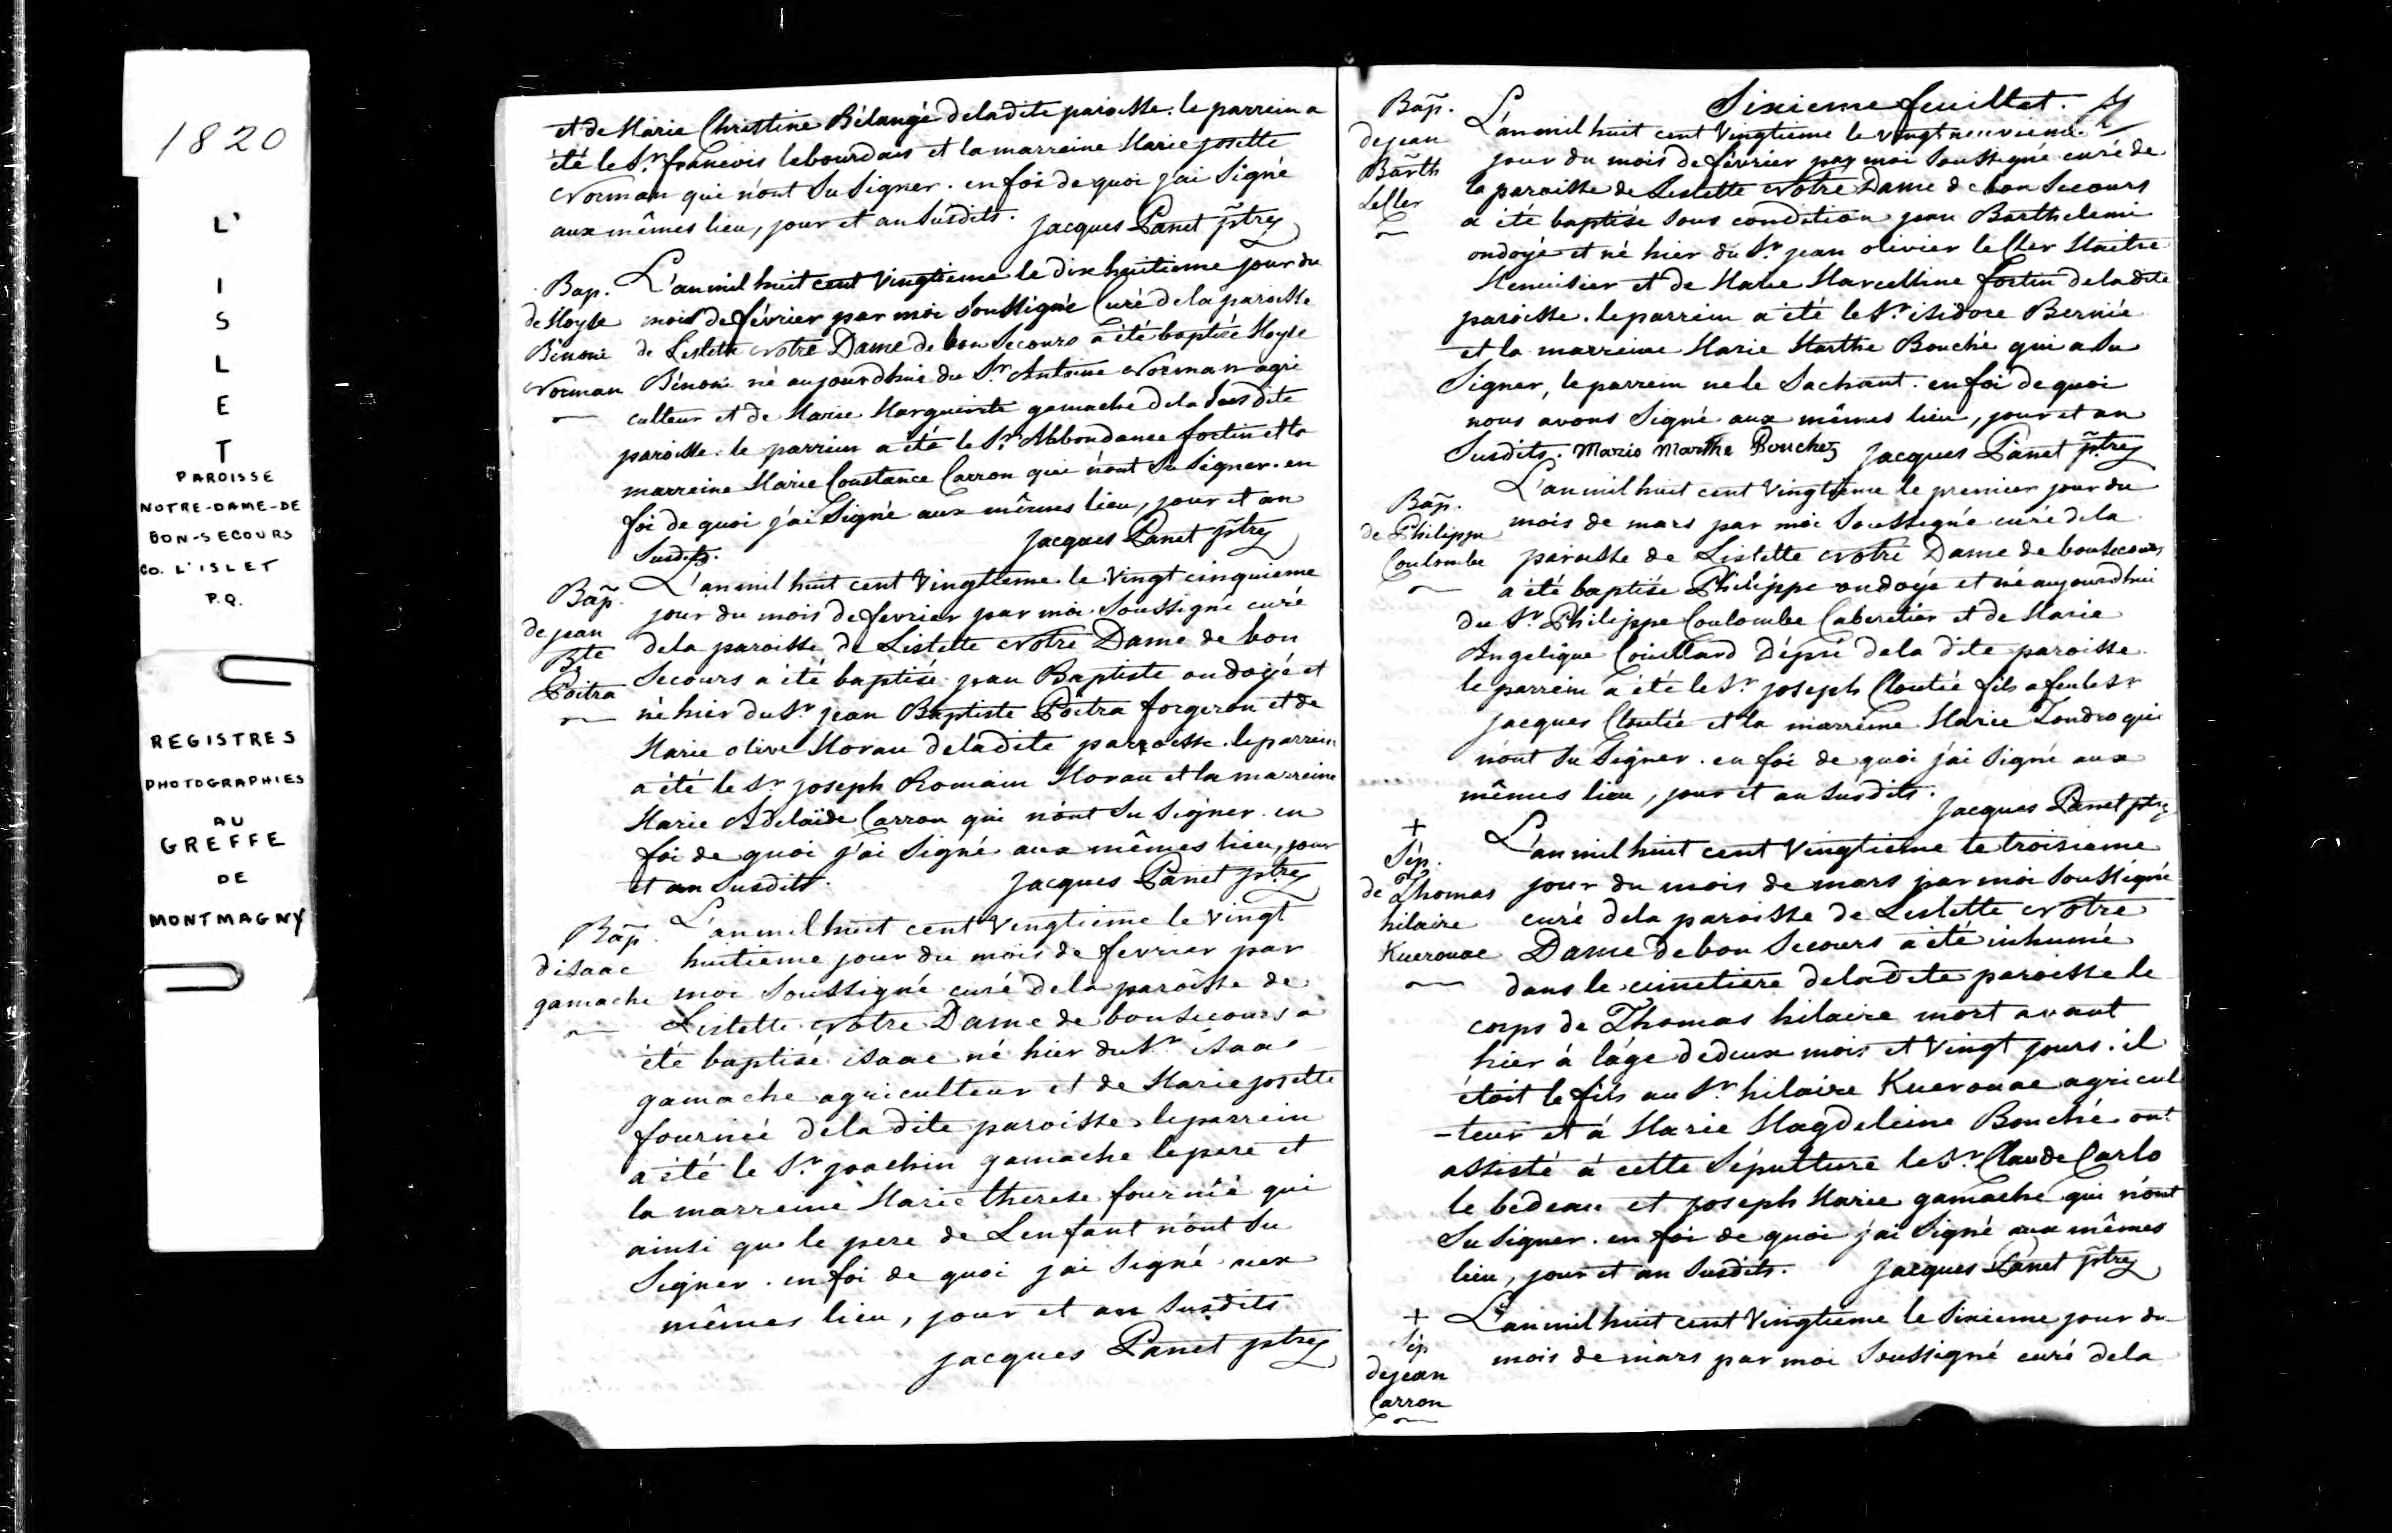 1820
L'
I
S
L
E
T
PAROISSE
NOTRE-DAME-DE
BON-SECOURS
CO. L'ISLET
P.Q.
REGISTRES
PHOTOGRAPHIES
AU
GREFFE
DE
MONTMAGNY
et de Marie Christine Bélangé de la dite paroisse. le parrein a
été le Sr. francois lebourdais et la marreine Marie josette
Norman qui n'ont Su Signer. en foi de quoi j'ai Signé
aux mêmes lieu, jour et an Susdits. Jacques Panet ptre
Bap. L'an mil huit cent Vingtieme le dix huitieme jour du
de Moyse mois de février par moi Soussigné Curé de la paroisse
Bénoni de Lislette Notre Dame de bon Secours a été baptisé Moyse
Norman Bénoni né aujourdhui du Sr. Antoine Norman agri
culteur et de Marie Marguerite gamache de la Susdite
paroisse. le parrein a été le Sr. Abbondance fortin et la
marreine Marie Constance Carron qui n'ont Su Signer. en
foi de quoi j'ai Signé aux mêmes lieu, jour et an
Susdits. Jacques Panet ptre
Bap. L'an mil huit cent Vingtieme le Vingt cinquieme
de jean jour du mois de fevrier par moi Soussigné curé
Bte de la paroisse de Lislette Notre Dame de bon
Poitra Secours a été baptisé jean Baptiste ondoyé et
né hier du Sr. jean Baptiste Poitra forgeron et de
Marie olive Morau de la dite parroisse. le parrein
a été le Sr joseph Romain Morau et la marreine
Marie Adelaïde Carron qui n'ont Su Signer. en
foi de quoi j'ai Signé aux mêmes lieu, jour
et an Susdits. Jacques Panet ptre
Bap. L'an mil huit cent Vingtieme le Vingt
d'isaac huitieme jour du mois de fevrier par
gamache moi Soussigné curé de la paroisse de
Lislette Notre Dame de bon Secours a
été baptisé isaac né hier du Sr isaac
gamache agriculteur et de Marie josette
fournié de la dite paroisse. le parrein
a été le Sr. joachim gamache le pere et
la marreine Marie therese fournié qui
ainsi que le pere de L'enfant n'ont Su
Signer. en foi de quoi j'ai Signé aux
mêmes lieu, jour et an Susdits
Jacques Panet ptre
Sixieme feuillet.
Bap. L'an mil huit cent Vingtieme le vingt neuvieme
de jean jour du mois de février par moi Soussigné curé de
Barth la paroisse de Lislette Notre Dame de bon Secours
LeCler a été baptisé sous condition jean Barthelemi
ondoyé et né hier du Sr. jean olivier le Cler Maitre
Menuisier et de Marie Marcelline fortin de la dite
paroisse. le parrein a été le Sr. isidore Bernié
et la marreine Marie Marthe Bouché qui a Su
Signer, le parrein ne le Sachant. en foi de quoi
nous avons Signé aux mêmes lieu, jour et an
Susdits. Marie Marthe Bouchez Jacques Panet ptre
Bap. L'an mil huit cent Vingtieme le premier jour du
de Philippe mois de mars par moi Soussigné curé de la
Coulombe paroisse de Lislette Notre Dame de bon Secours
a été baptisé Philippe ondoyé et né aujourdhui
du Sr. Philippe Coulombe Cabaretier et de Marie
Angelique Couillard Dépré de la dite paroisse.
le parrein a été le Sr. joseph Cloutié fils a feu le Sr
jacques Cloutié et la marreine Marie Tondro qui
n'ont Su Signer. en foi de quoi j'ai Signé aux
mêmes lieu, jour et an Susdits. Jacques Panet ptre
+
Sép. L'an mil huit cent Vingtieme le troisieme
de Thomas jour du mois de mars par moi Soussigné
hilaire curé de la paroisse de Lislette Notre
Kuerouac Dame de bon Secours a été inhumé
dans le cimetiere de la dite paroisse le
corps de Thomas hilaire mort avant
hier à l'âge de deux mois et Vingt jours. il
étoit le fils au Sr. hilaire Kuerouac agricul
-teur et à Marie Magdeleine Bouché. ont
assisté à cette Sépulture le Sr. Claude Carlo
le bedeau et joseph Marie gamache qui n'ont
Su Signer. en foi de quoi j'ai Signé aux mêmes
lieu, jour et an Susdits. Jacques Panet ptre
+ L'an mil huit cent Vingtieme le Sixieme jour du
Sép mois de mars par moi Soussigné curé de la
de jean
Carron